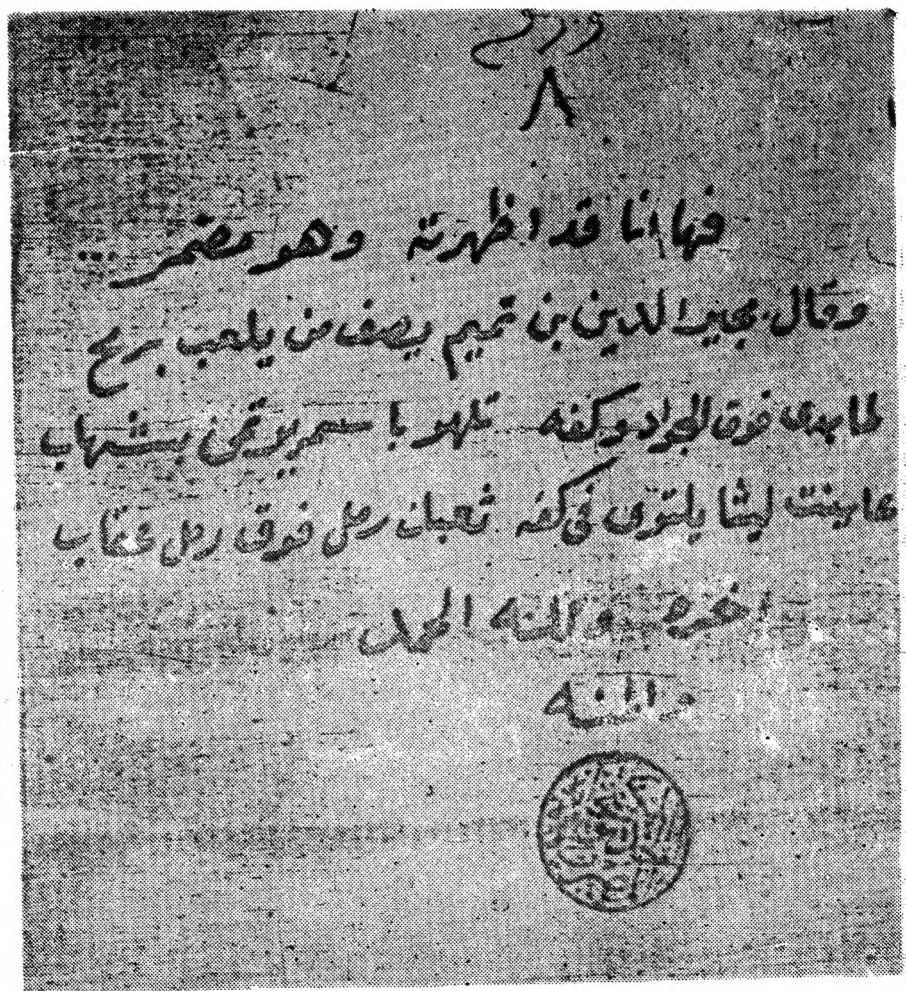 ورق
٨
فها انا قد اظهرته وهو مضمر ...
وقال مجير الدين بن تميم يصف من يلعب برمح
لما بدى فوق الجواد وكفه تلهو باسمر
عاينت ليثا يلتوى فى كفه ثعبان رمل فوق عقاب
اخره ولله الحمد
والمنه